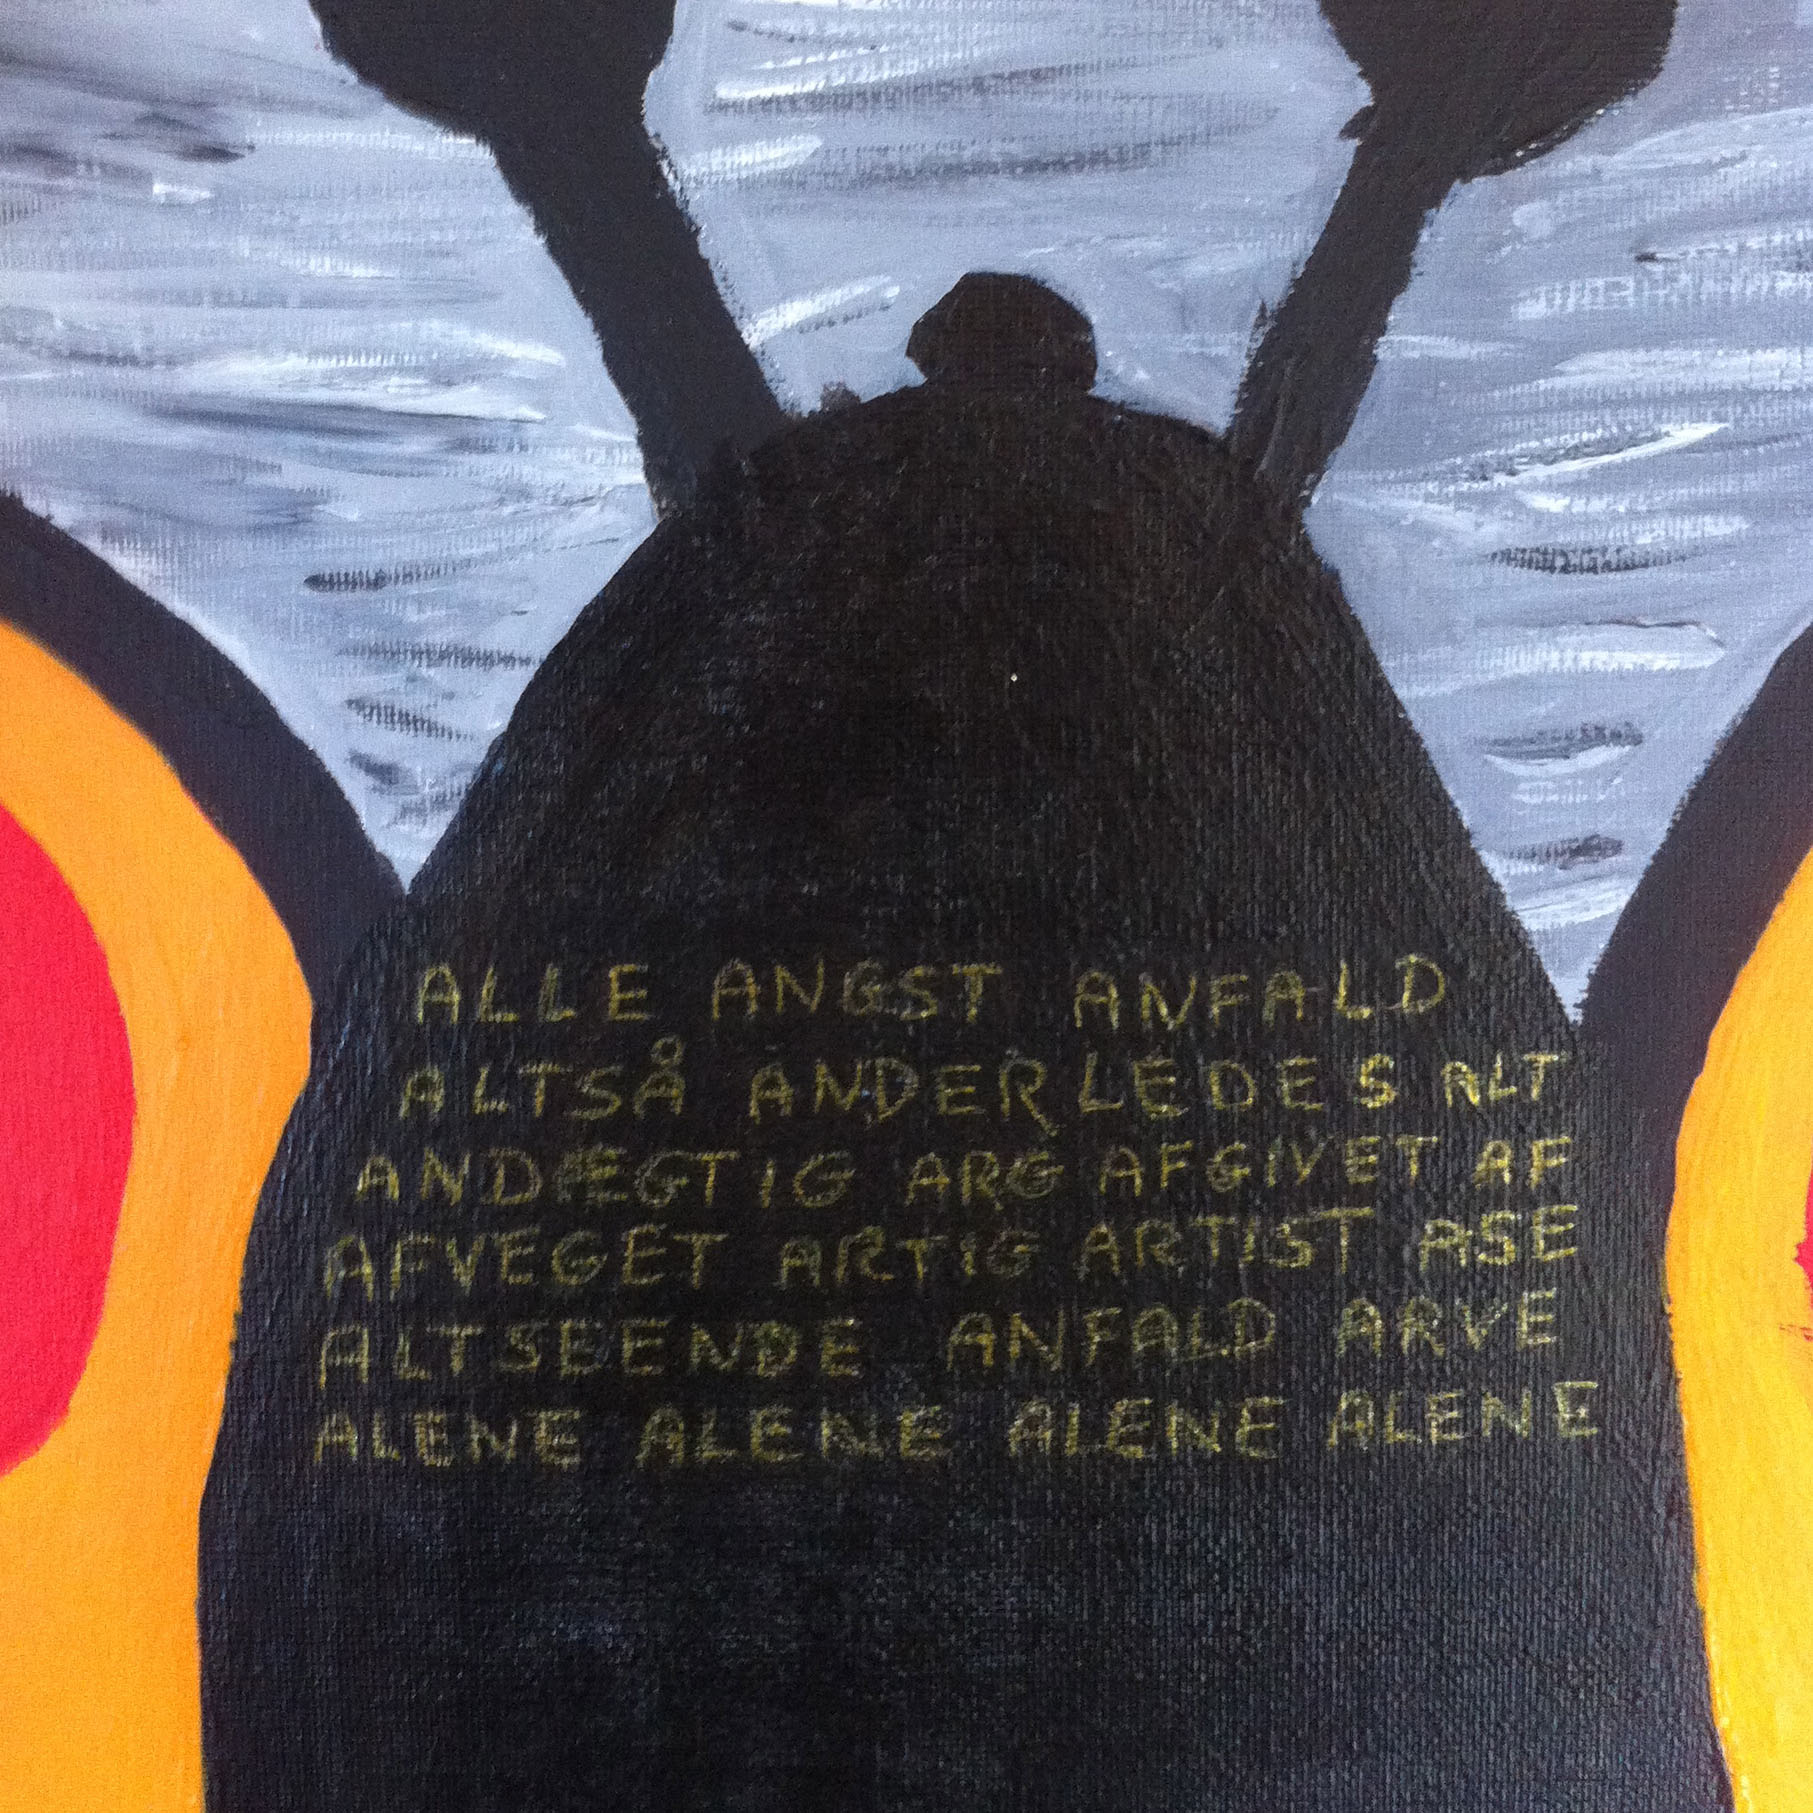 ALLE ANGST ANFALD
ALTSÅ ANDERLEDES ALT
ANDÆGTIG ARG AFGIVET AF
AFVEGET ARTIG ARTIST ASE
ALTSEENDE ANFALD ARVE
ALENE ALENE ALENE ALENE